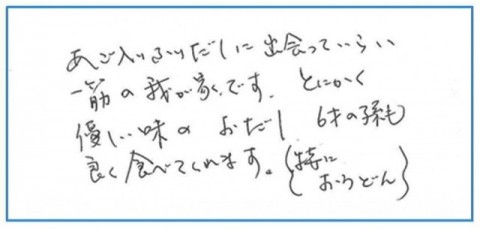 あご入りふりだしに出会っていらい
一筋の我が家です。とにかく
優しい味のおだし 6才の孫も
良く食べてくれます。(特に
おうどん)